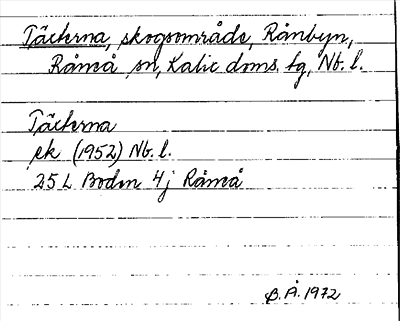 Täckerna, skogsområde, Rånbyn,
Råneå sn, Kalix doms. tg, Nb. l.
Täckerna
ek (1952) Nb. l.
25 L Boden 4j Råneå
B. Å. 1972